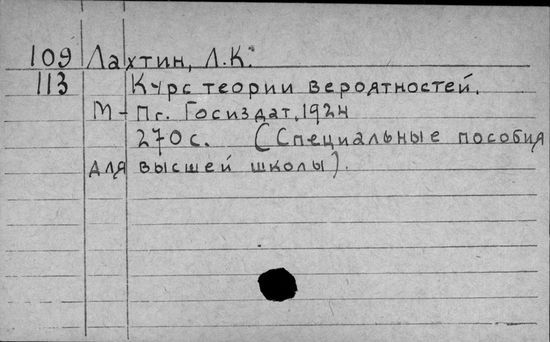 109 Лахтин, Л.К.
113 Курс теории вероятностей.
М-Пг. Госиздат, 1924
270 с. (Специальные пособия
для высшей школы).